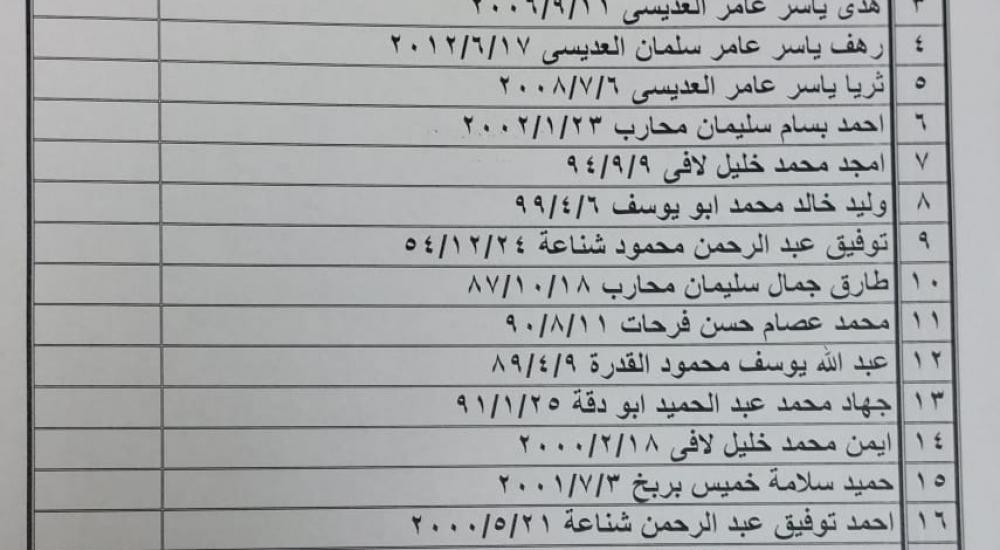 ٣ هدى ياسر عامر العديسي ٢٠٠٦/٩/١١
٤ رهف ياسر عامر سلمان العديسى ٢٠١٢/٦/١٧
٥ ثريا ياسر عامر العديسى ٢٠٠٨/٧/٦
٦ احمد بسام سليمان محارب ٢٠٠٢/١/٢٣
٧ امجد محمد خليل لافى ٩٤/٩/٩
٨ وليد خالد محمد ابو يوسف ٩٩/٤/٦
٩ توفيق عبد الرحمن محمود شناعة ٥٤/١٢/٢٤
١٠ طارق جمال سليمان محارب ٨٧/١٠/١٨
١١ محمد عصام حسن فرحات ٩٠/٨/١١
١٢ عبد الله يوسف محمود القدرة ٨٩/٤/٩
١٣ جهاد محمد عبد الحميد ابو دقة ٩١/١/٢٥
١٤ ايمن محمد خليل لافى ٢٠٠٠/٢/١٨
١٥ حميد سلامة خميس بربخ ٢٠٠١/٧/٣
١٦ احمد توفيق عبد الرحمن شناعة ٢٠٠٠/٥/٢١